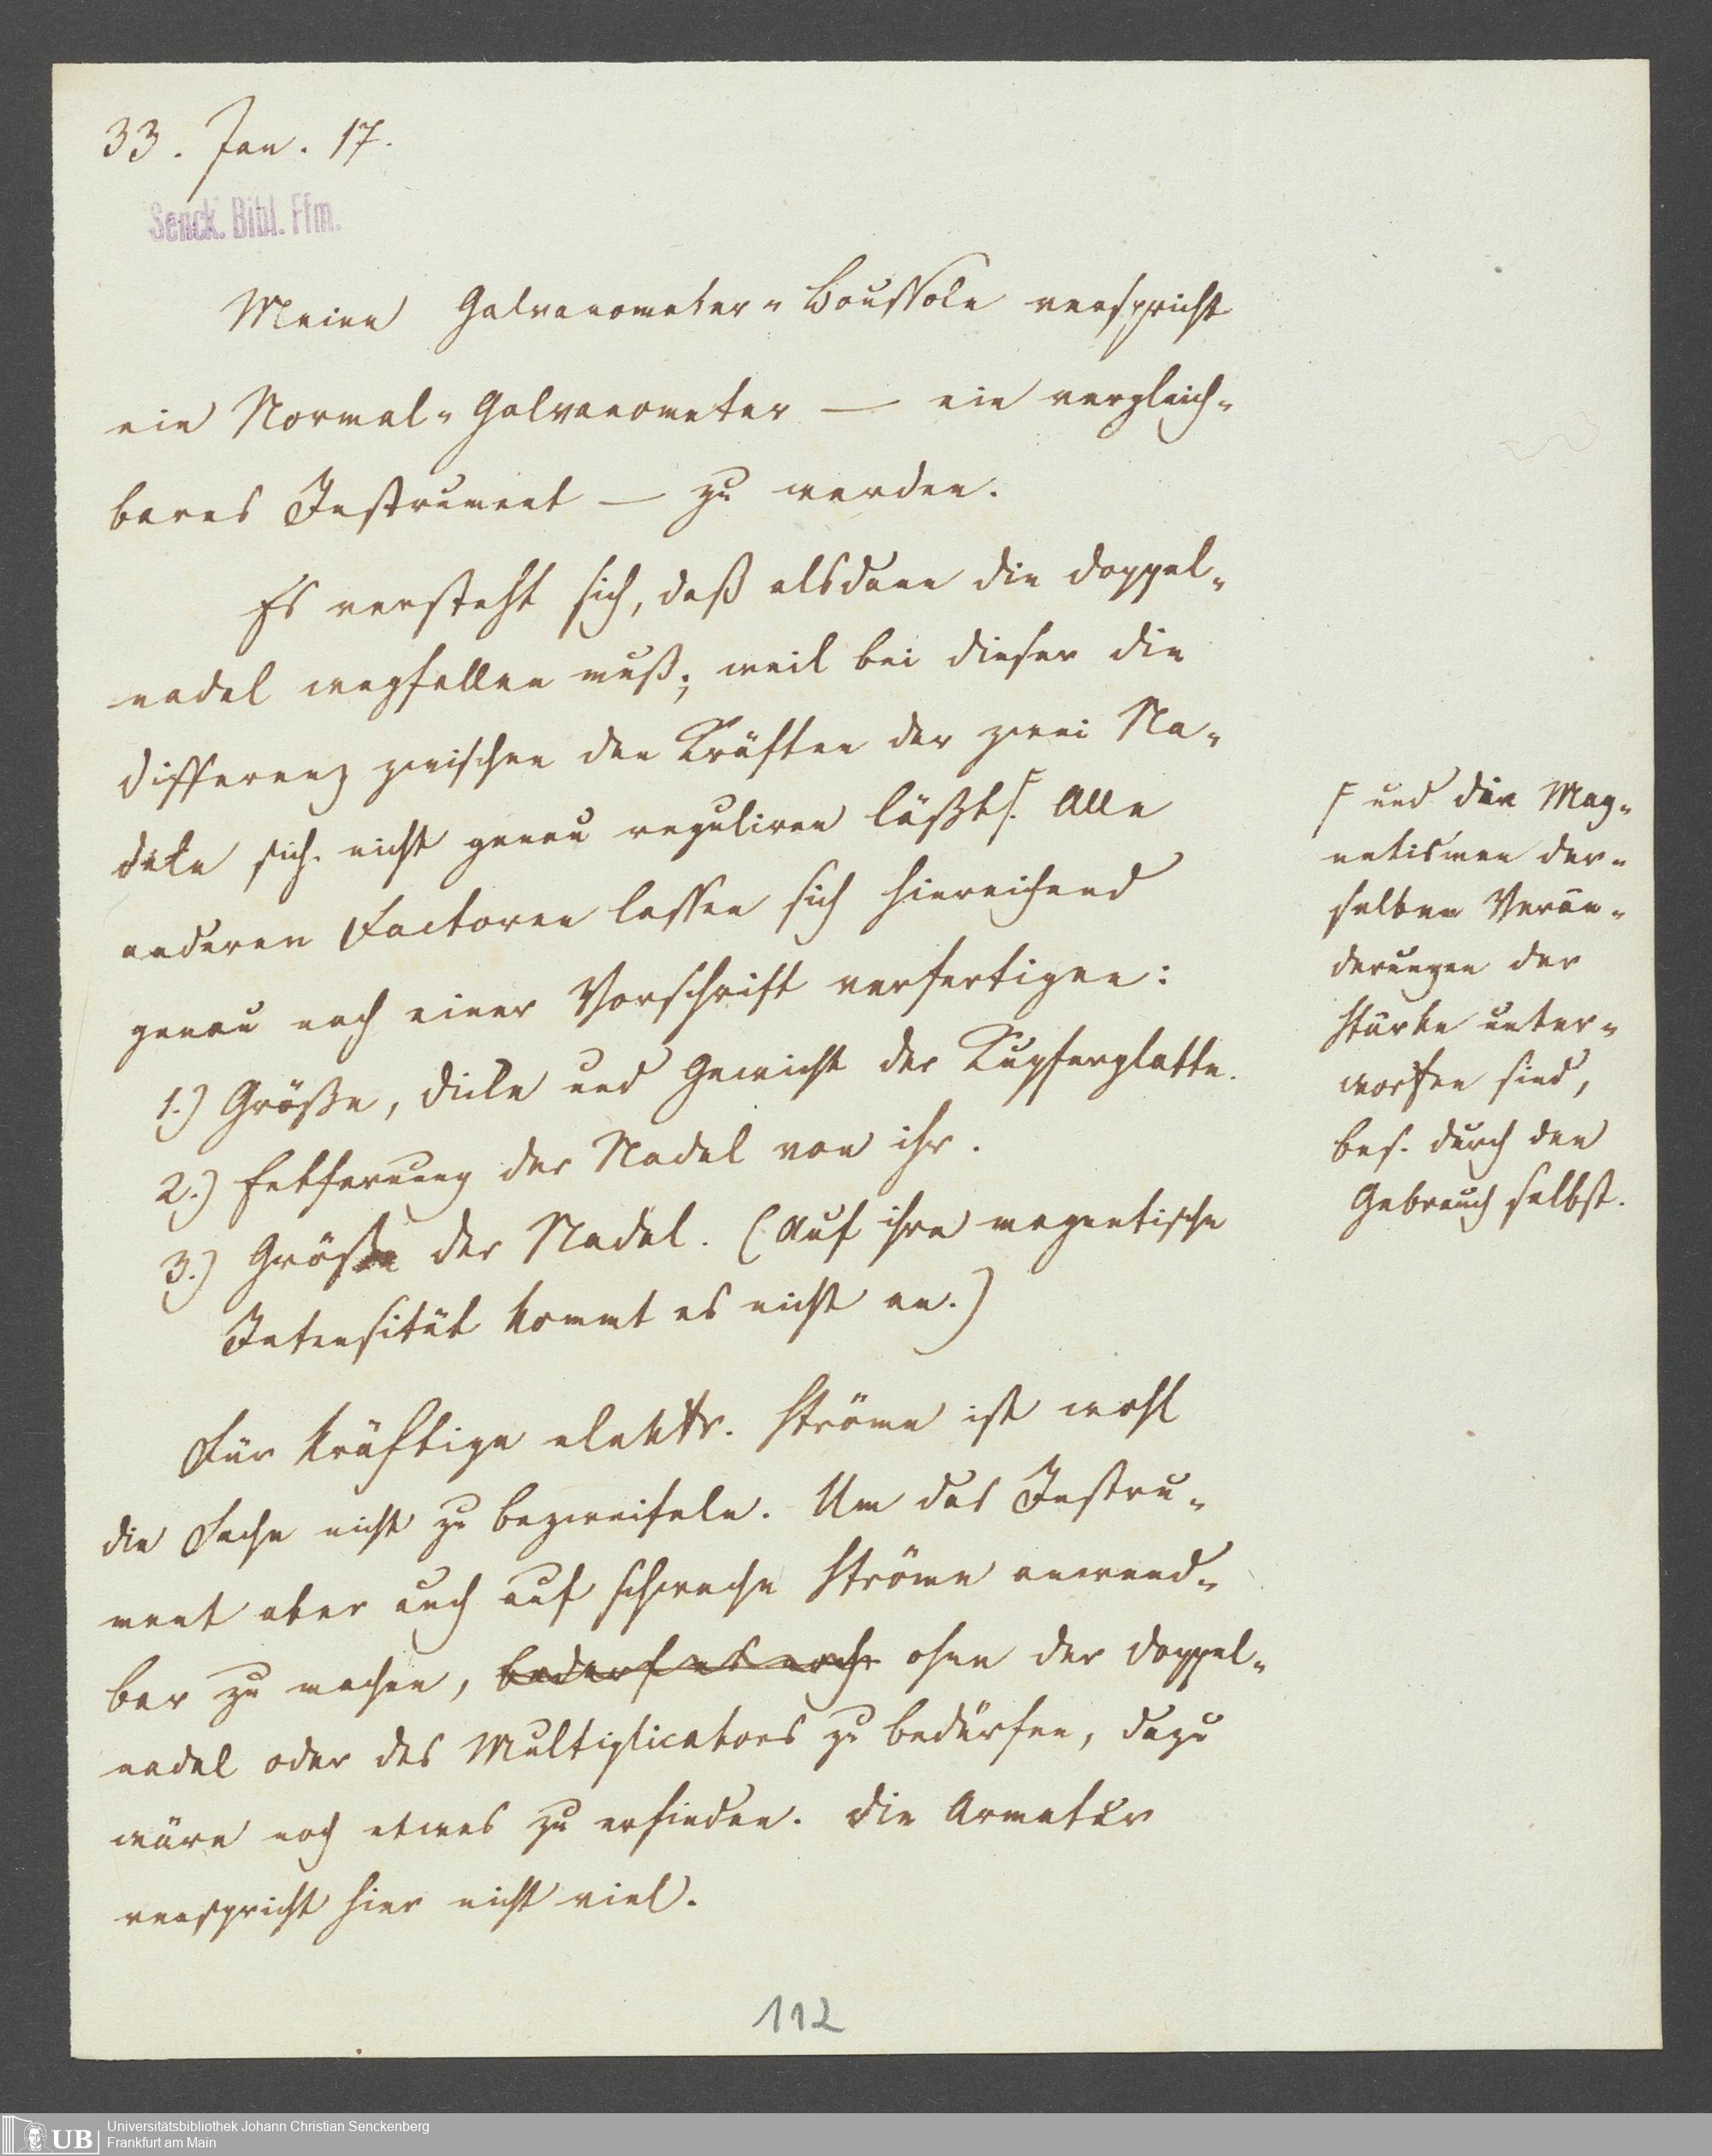 33. Jan. 17.
Senck. Bibl. Ffm.
Meine Galvanometer-Boussole verspricht
ein Normal-Galvanometer — ein vergleich-
bares Instrument — zu werden.
Es versteht sich, daß alsdann die Doppel-
nadel wegfallen muß; weil bei dieser die
Differenz zwischen den Kräften der zwei Na-
deln sich nicht genau reguliren läßt. Alle
anderen Factoren lassen sich hinreichend
genau nach einer Vorschrift verfertigen:
1.) Größe, Dicke und Gewicht der Kupferplatte.
2.) Entfernung der Nadel von ihr.
3.) Größe der Nadel. (Auf ihre magnetische
Intensität kommt es nicht an.)
Für kräftige elektr. Ströme ist wohl
die Sache nicht zu bezweifeln. Um das Instru-
ment aber auch auf schwache Ströme anwend-
bar zu machen, bedarf es noch ohne der Doppel-
nadel oder des Multiplicators zu bedürfen, dazu
wäre noch etwas zu erfinden. Die Armatur
verspricht hier nicht viel.
und die Mag-
netismen der-
selben Verän-
derungen der
Stärke unter-
worfen sind,
bes. durch den
Gebrauch selbst.
112
UB
Universitätsbibliothek Johann Christian Senckenberg
Frankfurt am Main